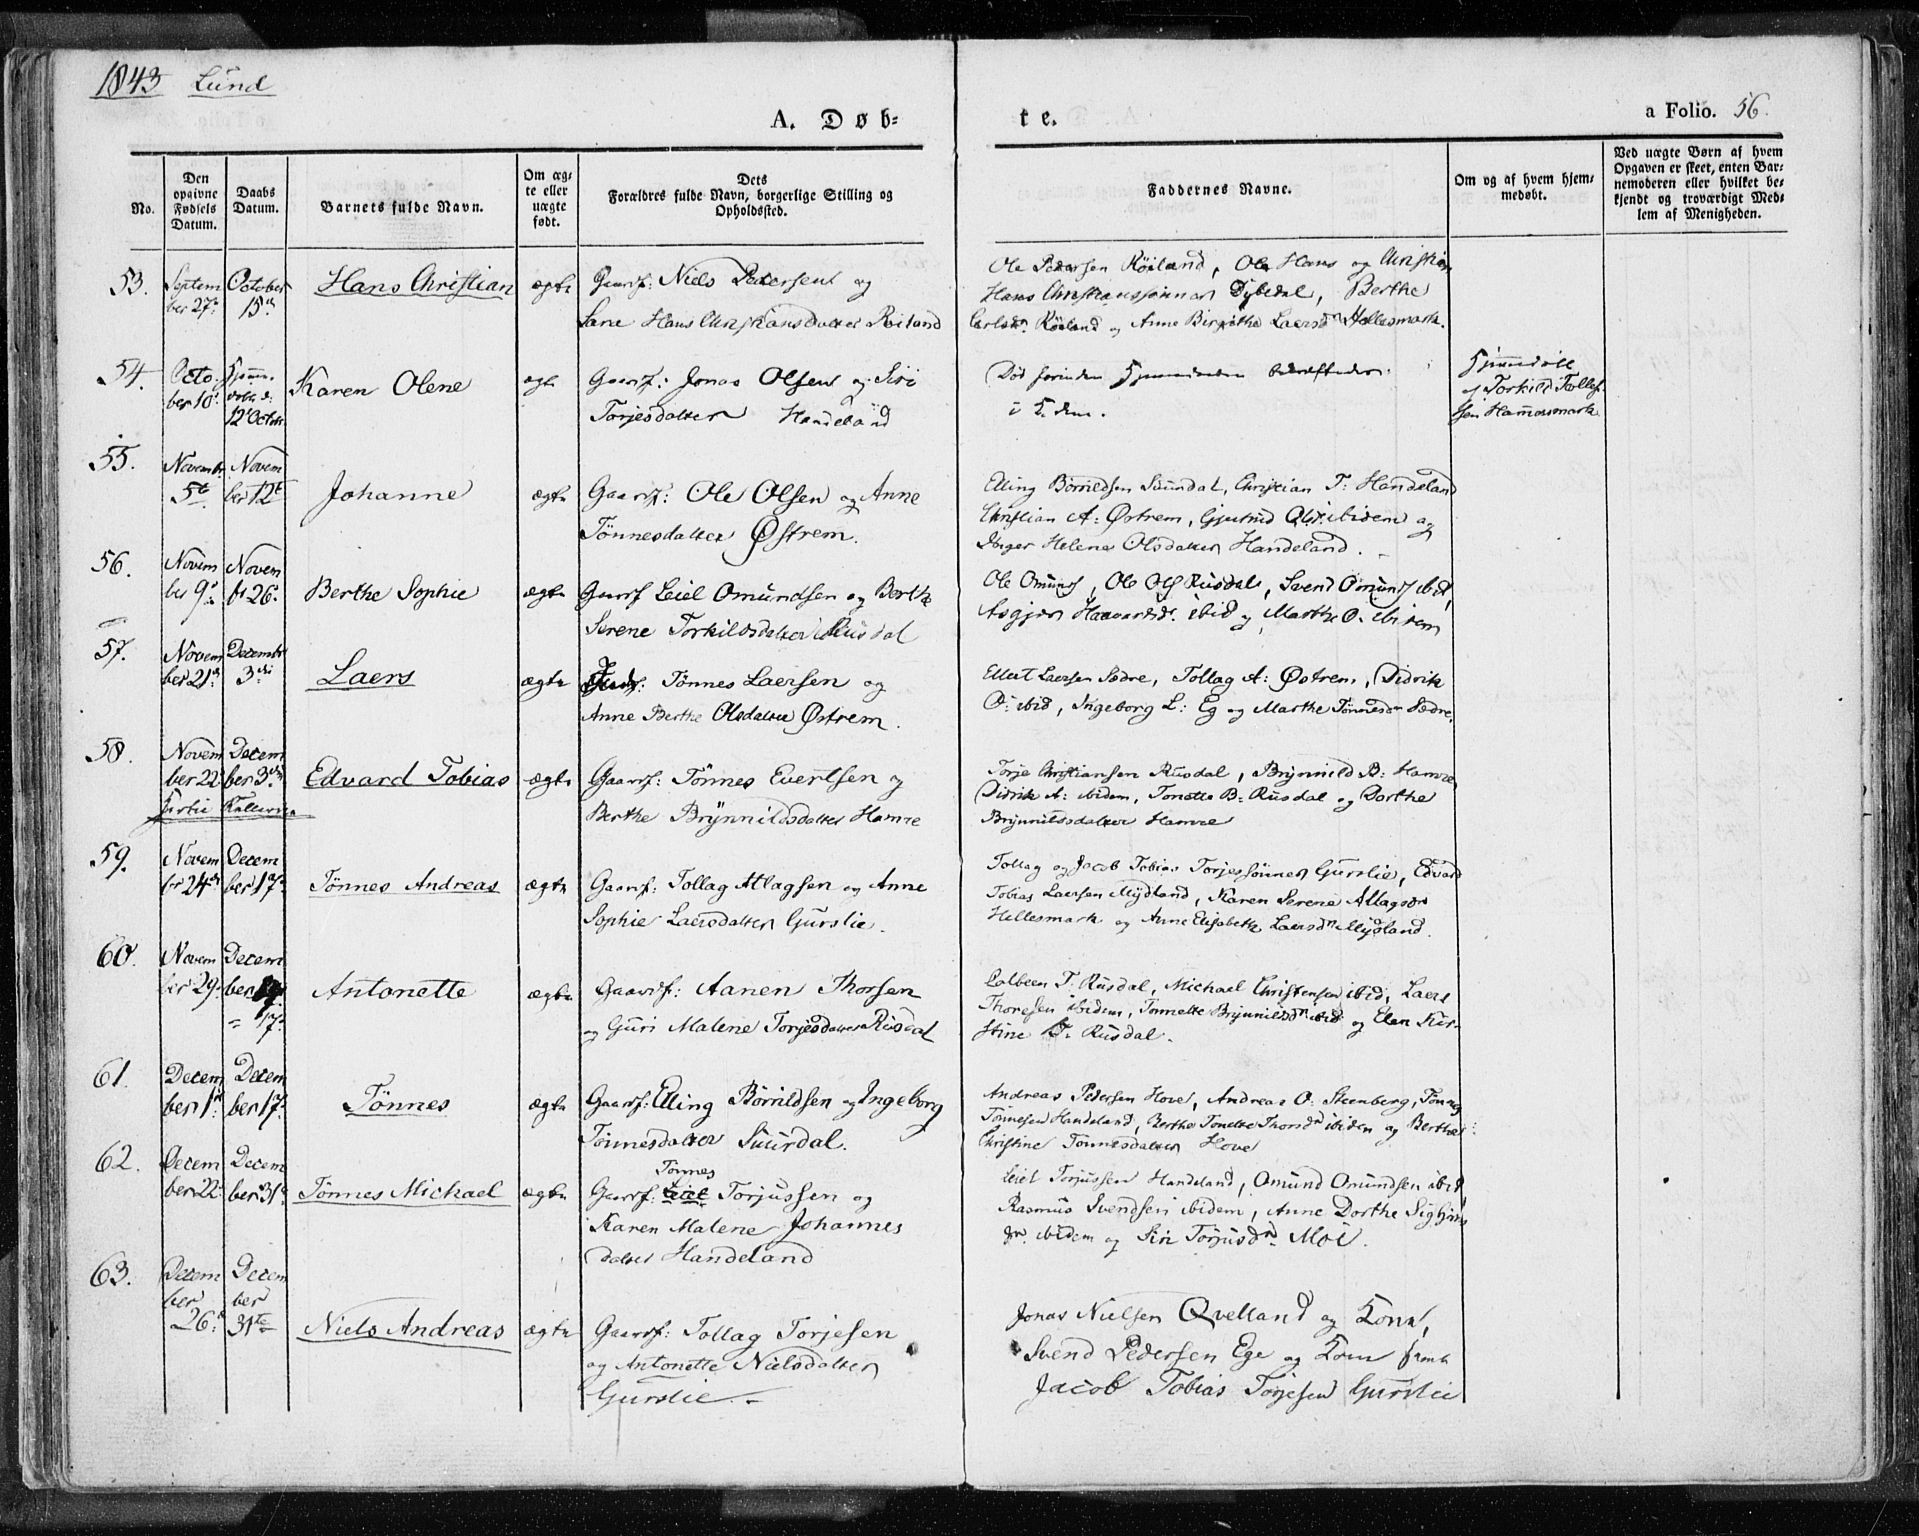 1843 Lund
A. Døb-
te.
a Folio. 56.
No.
Den
opgivne
Fødsels
Datum.
Daabs
Datum.
Barnets fulde Navn.
Om æg-
te eller
uægte
født.
Dets
Forældres fulde Navn, borgerlige Stilling og
Opholdssted.
Faddernes Navne.
Om og af hvem hjem-
medøbt.
Ved uægte Børn af hvem
Opgaven er skeet, enten Bar-
nemoderen eller hvilket be-
kjendt og troværdigt Med-
lem af Menigheden.
53.
Septem
ber 27de
October
15de
Hans Christian
ægte
Gaardf: Niels Petersen og
Hans Christiansdatter Røiland
Ole Pedersen Røiland, Ole Hans og Christian
Hans Christianssønner Dybedal, Berthe
Carlsdr. Røiland og Anne Birgithe Laersdr Hellesmark.
54.
Octo
ber 10de
12te Octobr
Karen Olene
ægte
Gaardf: Jonas Olsen og Siri
Torjesdatter Handeland
Død forinden
Torkild Tolles-
sen Hamersmark
55.
Novembr
5te
Novem
ber 12te
Johanne
ægte
Gaardf: Ole Olsen og Anne
Tønnesdatter Østrem.
Elling Børrildsen Suurdal, Christian T: Handeland
Christian A: Østrem, Gjertrud Olsdr. ibidem og
Inger Helene Olsdatter Handeland.
56.
Novem
ber 9de
Novem
br 26.
Berthe Sophie
ægte
Gaardf Leiel Omundsen og Berthe
Serene Torkildsdatter Rusdal
Ole Omunds, Ole Ols Rusdal, Svend Omunds ibid,
Asgjer Haavardsdr. ibid og Marthe O. ibidem
57.
Novem
ber 21de
Decembr
3die
Laers
ægte
Gaardf: Tønnes Laersen og
Anne Berthe Olsdatter Østrem.
Ellert Laersen Sædre, Tollag A: Østrem, Didrik
O: ibid, Ingeborg L: Eg og Marthe Tønnesdr Sædre.
58.
Novem
ber 22
Decem
ber 3die
Edvard Tobias
ægte
Gaardf: Tønnes Evertsen og
Berthe Brynnildsdatter Hamre
Torje Christiansen Rusdal, Brynnild B: Hamre
Didrik A: ibidem, Tonette B: Rusdal og Dorthe
Brynnildsdatter Hamre
59.
Novem
br 24de
Decem
ber 17de
Tønnes Andreas
ægte
Gaardf: Tollag Atlagsen og Anne
Sophie Laersdatter Gurslie.
Tollag og Jacob Tobias Torjessønner Gurslie, Edvard
Tobias Laersen Mydland, Karen Serene Atlagsdr
Hellesmark og Anne Elisabeth Laersdr Mydland.
60.
Novem
ber 29de
Decem
ber
" 17de
Antonette
ægte
Gaardf: Aanen Thorsen
og Guri Malene Torjesdatter Rusdal
T. Rusdal, Michael Christensen ibid, Laers
Thoresen ibidem, Tonnette Brynnildsdr ibid og Elen Kir-
stine Rusdal.
61.
Decem
ber 1ste
Decem
ber 17de
Tønnes
ægte
Gaardf: Elling Børrildsen og Ingeborg
Tønnesdatter Suurdal.
Andreas Pedersen Hove, Andreas O: Steenberg, Tønnes
Tønnesen Handeland, Berthe Tonette Thorsdr ibidem og Berthe
Christine Tønnesdatter Hove
62.
Decem
ber 22
Decem
ber 31te
Tønnes Michael
ægte
Tønnes
Gaardf: Leiel Torjussen og
Karen Malene Johannes
datter Handeland
Leiel Torjussen Handeland, Omund Omundsen ibid,
Rasmus Svendsen ibidem, Anne Dorthe Sigbjørns
dr. ibidem og Siri Torjusdr Moi.
63.
Decem
ber
26de
Decem
ber
31te
Niels Andreas
ægte
Gaardf: Tollag Torjesen
og Antonette Nielsdatter
Gurslie.
Jonas Nielsen Qvelland og Kone,
Svend Pedersen Ege og Kone samt
Jacob Tobias Torjesen Gurslie